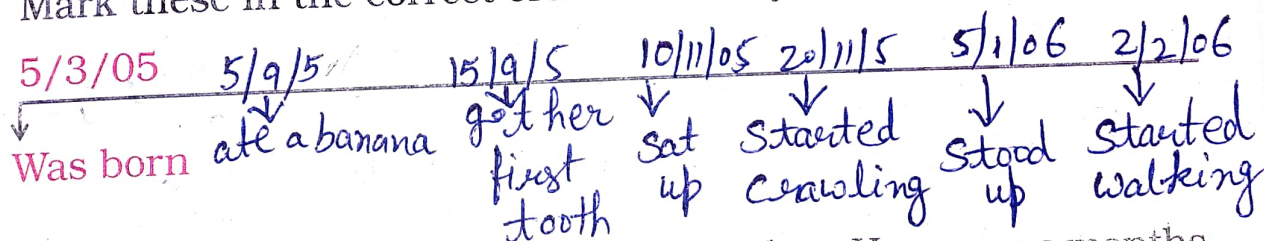 Mark these in the correct
5/3/05 5/9/5 15/9/5 10/11/05 20/11/5 5/1/06 2/2/06
Was born ate a banana got her first tooth Sat up Started Crawling Stood up Started walking
months